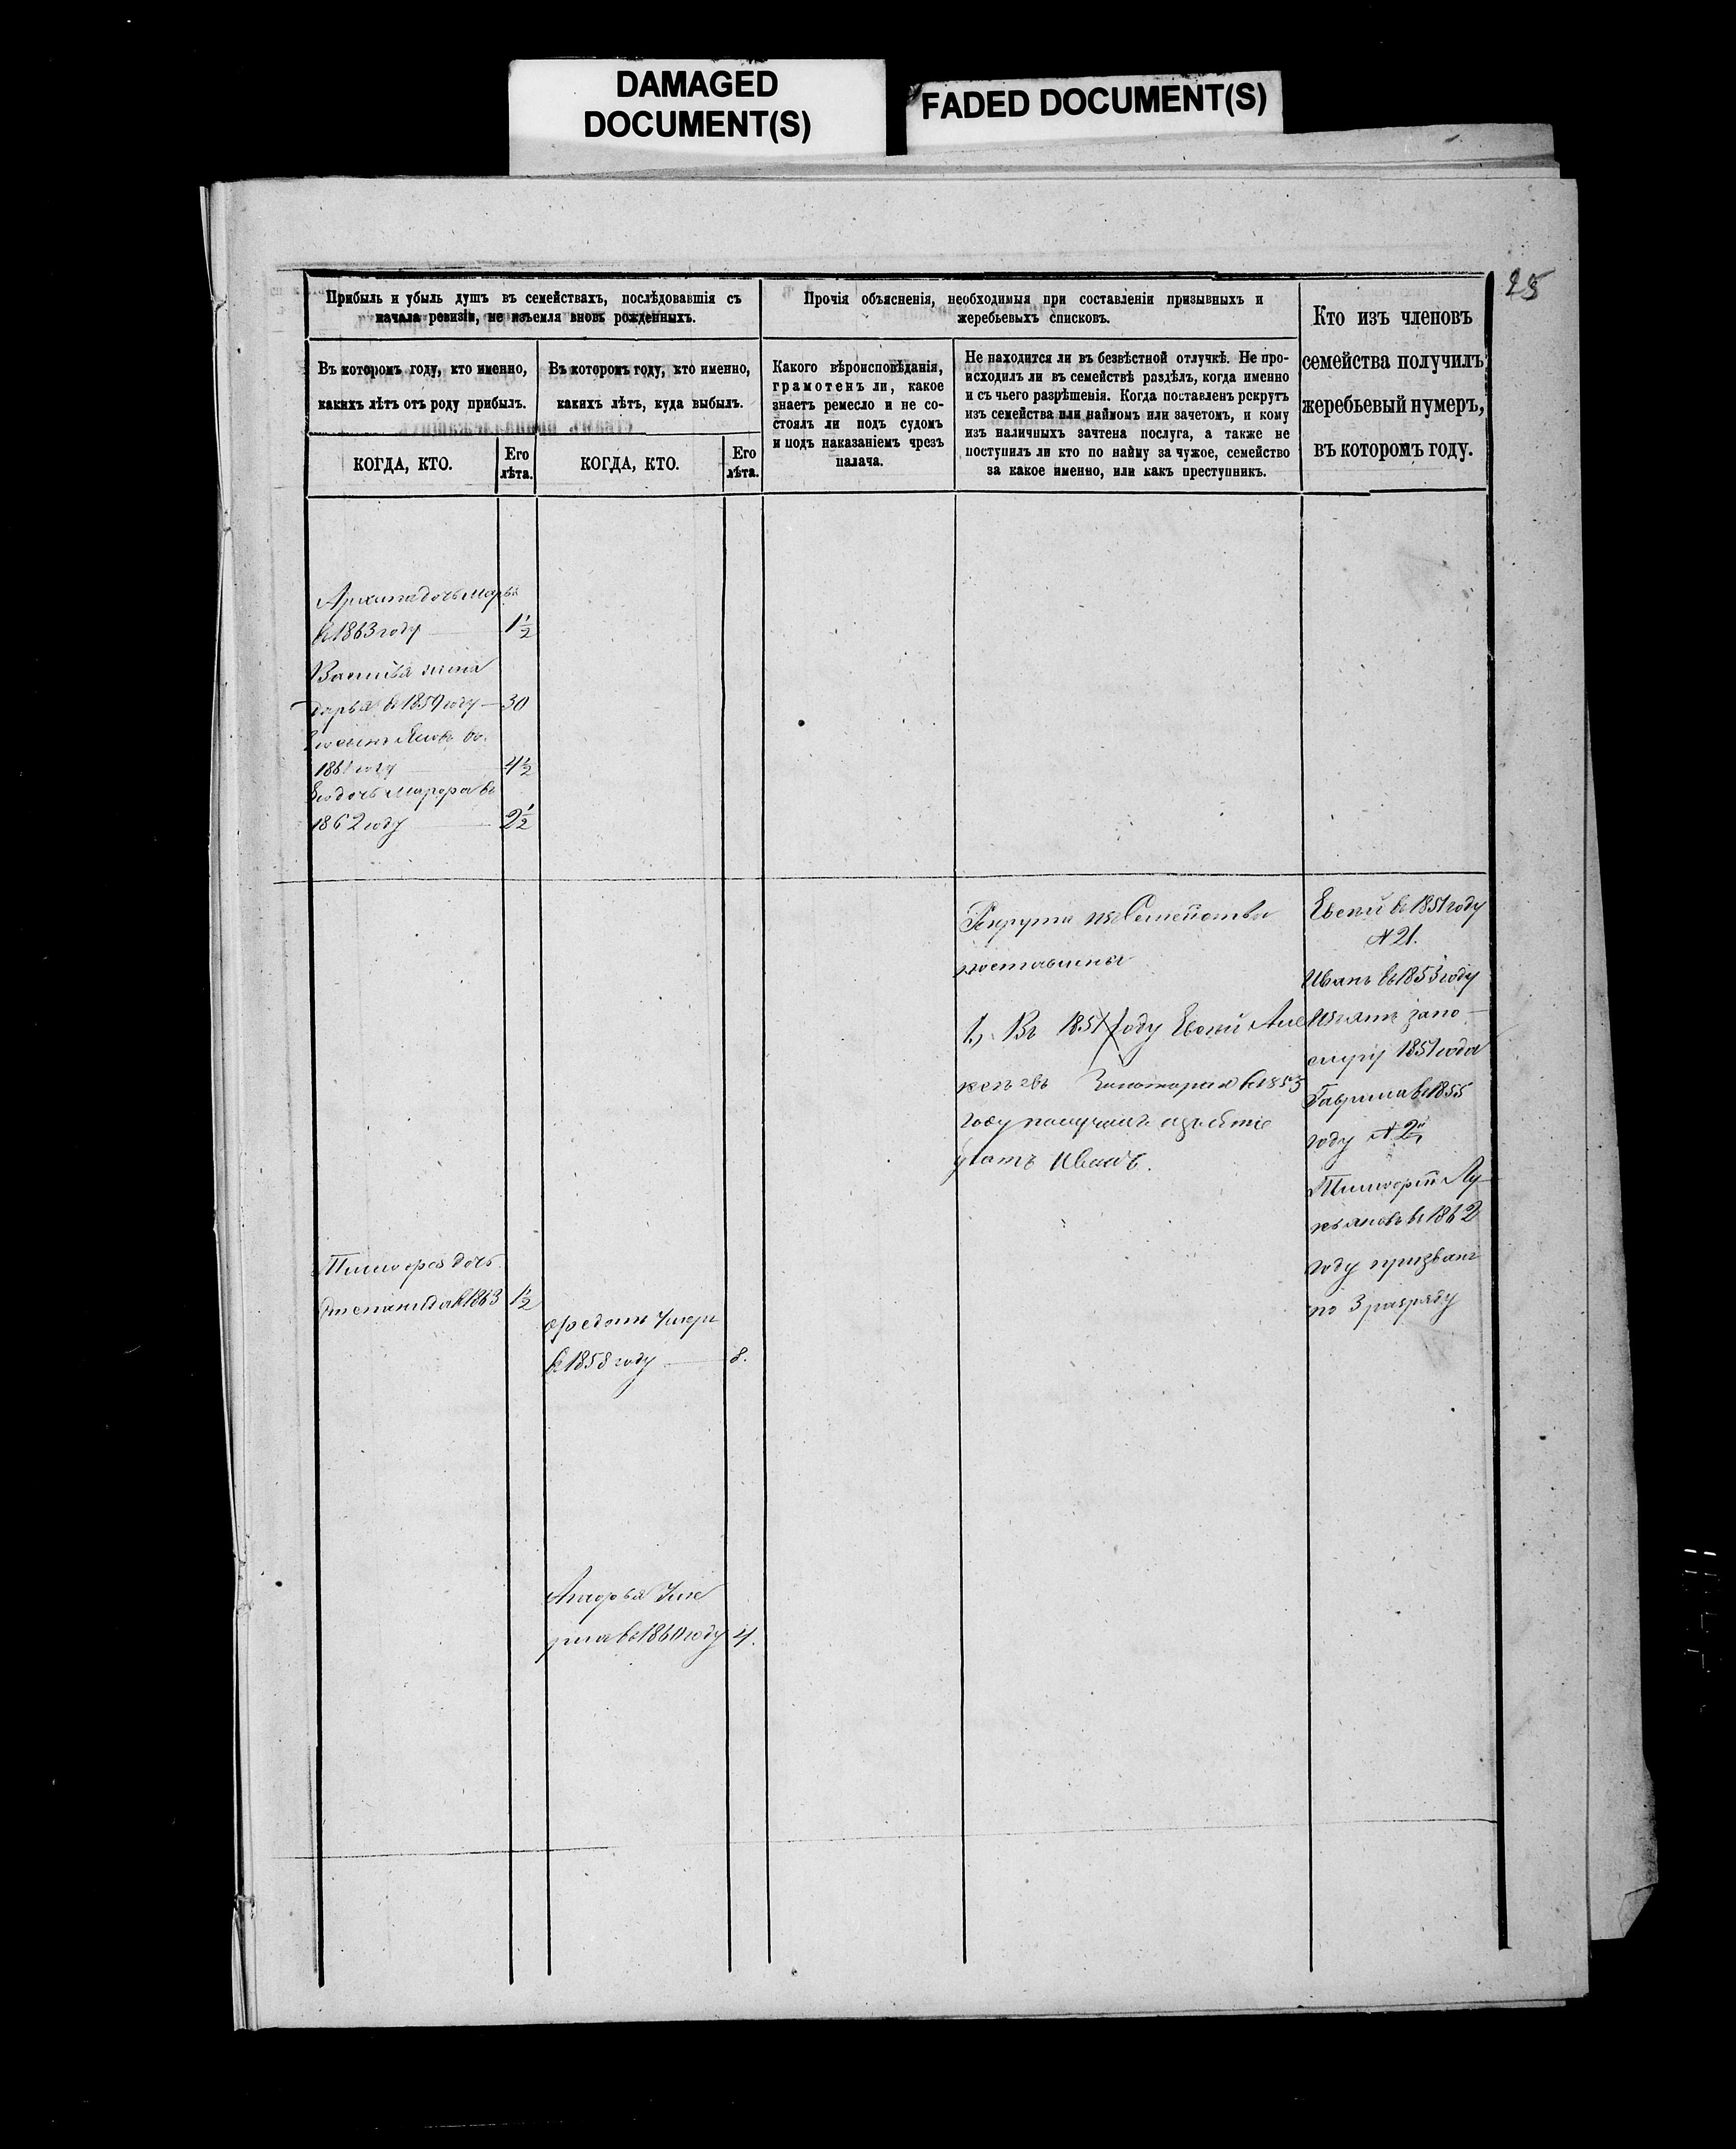 DAMAGED
DOCUMENT(S)
FADED DOCUMENT(S)
25
Прибыль и убыль душъ въ семействахъ, послѣдовавшія съ
начала ревизіи, не изъемля вновь рожденныхъ.
Въ которомъ году, кто именно,
какихъ лѣтъ отъ роду прибылъ.
КОГДА, КТО.
Его
лѣта.
Въ которомъ году, кто именно,
какихъ лѣтъ, куда выбылъ.
КОГДА, КТО.
Его
лѣта.
Прочія объясненія, необходимыя при составленіи призывныхъ и
жеребьевыхъ списковъ.
Какого вѣроисповѣданія,
грамотенъ ли, какое
знаетъ ремесло и не со-
стоялъ ли подъ судомъ
и подъ наказаніемъ чрезъ
палача.
Не находится ли въ безвѣстной отлучкѣ. Не про-
исходилъ ли въ семействѣ раздѣлъ, когда именно
и съ чьего разрѣшенія. Когда поставленъ рекрутъ
изъ семейства или наймомъ или зачетомъ, и кому
изъ наличныхъ зачтена послуга, а также не
поступилъ ли кто по найму за чужое, семейство
за какое именно, или какъ преступникъ.
Кто изъ членовъ
семейства получилъ
жеребьевый нумеръ,
въ которомъ году.
Архипа дочь Марья
въ 1863 году 1½
Василья жена
Дарья въ 1859 году — 30
Его сынъ Яковъ въ
1861 году 4½
Его дочь Марфа въ
1862 году 2½
Тимофея дочь
Степанида въ 1863 1½
Федотъ умеръ
въ 1858 году 8.
Агафья Уме
рла въ 1860 году 4.
Рекрута изъ Семейства
поставлены
1, Въ 1851 году Евсей
въ 1853
году получилъ
братъ Иванъ.
Евсей въ 1851 году
№ 21.
Иванъ въ 1853 году
Изъятъ за по-
слугу 1851 года
Гаврила въ 1855
году № 2й
Тимофей Лу-
кьяновъ въ 1862
году призванъ
по 3 разряду